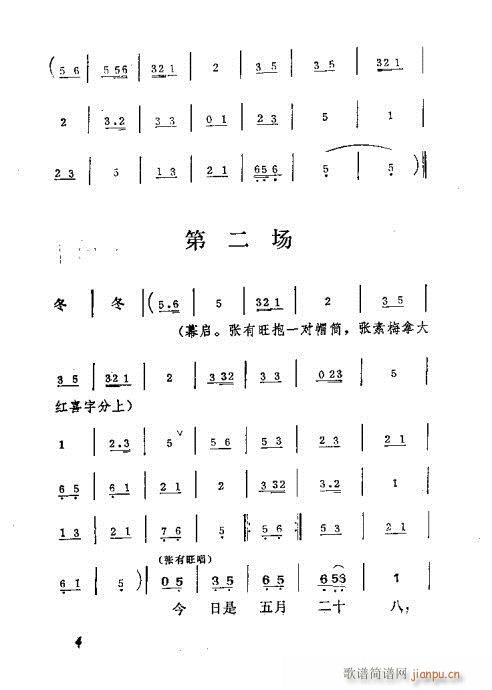 (5 6 | 5 5 6 | 3 2 1 | 2 | 3 5 | 3 5 | 3 2 1 |
2 | 3 . 2 | 3 3 | 0 1 | 2 3 | 5 | 1 |
2 3 | 5 | 1 3 | 2 1 | 6 5 6 | 5 | 5 )
第 二 场
冬 | 冬 | (5 . 6 | 5 | 3 2 1 | 2 | 3 5 |
(幕启。张有旺抱一对帽筒，张素梅拿大
3 5 | 3 2 1 | 2 | 3 3 2 | 3 3 | 0 2 3 | 5 |
红喜字分上)
1 | 2 . 3 | 5 ∨ | 5 6 | 5 3 | 2 3 | 2 1 |
6 5 | 6 1 | 2 1 | 2 | 3 3 2 | 3 . 2 | 1 |
1 3 | 2 1 | 7 6 | 5 |: 5 6 :| 5 3 | 2 1 |
(张有旺唱)
6 1 | 5 ) | 0 5 | 3 5 | 6 5 | 6 5 3 | 1 |
今 日是 五月 二十 八，
4
歌谱简谱网
jianpu.cn